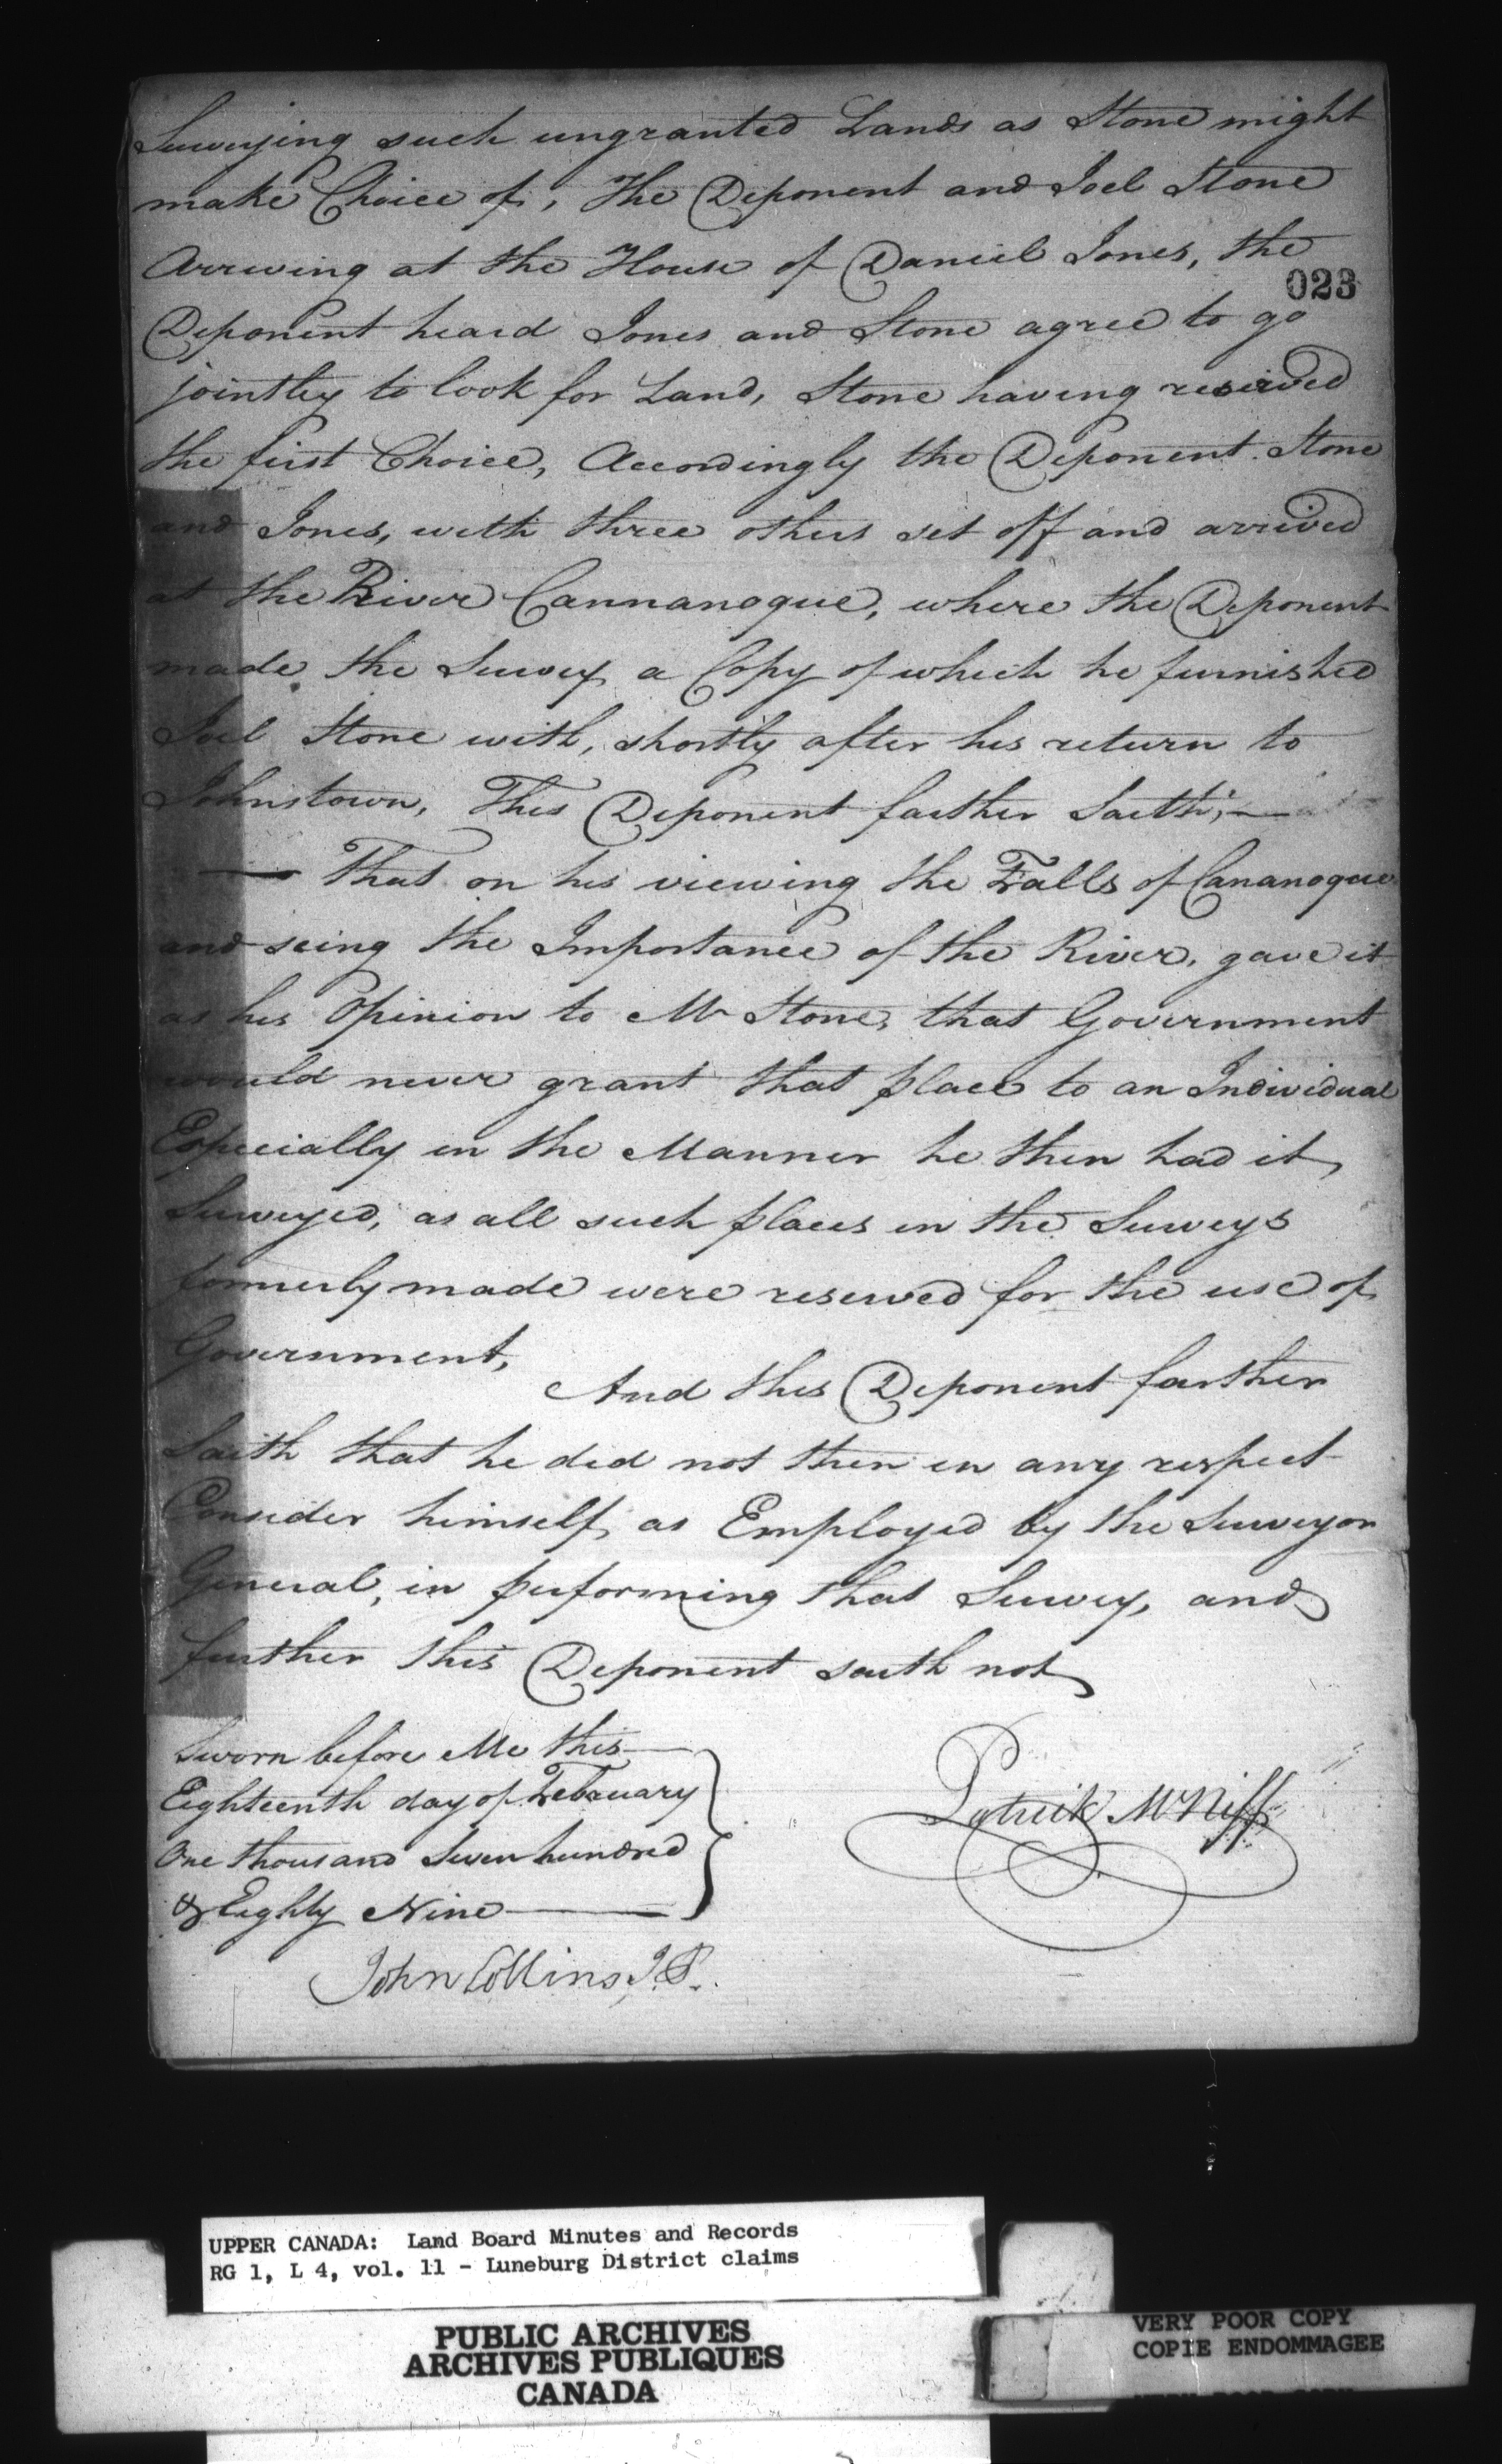 Surveying such ungranted Lands as Stone might
make Choice of, The Deponent and Joel Stone
Arriving at the House of Daniel Jones, the
023
Deponent heard Jones and Stone agree to go
jointley to look for Land, Stone having reserved
the first Choice, Accordingly the Deponent Stone
and Jones, with three others set off and arrived
at the River Cannanoque, where the Deponent
made the Survey a Copy of which he furnished
Joel Stone with, shortly after his return to
Johnstown, This Deponent farther Saith,—
— That on his viewing the Falls of Cananoque
and seing the Importance of the River, gave it
as his Opinion to Mr Stone, that Government
would never grant that place to an Individual
Especially in the Manner he then had it,
Surveyed, as all such places in the Surveys
formerly made were reserved for the use of
Government,
And this Deponent farther
Saith that he did not then in any respect
Consider himself as Employed by the Surveyor
General, in performing that Survey, and
further this Deponent saith not
Sworn before Me this—
Eighteenth day of February
One thousand Seven hundred
& Eighty Nine—
Patrick McNiff
John Collins J.P.
UPPER CANADA: Land Board Minutes and Records
RG 1, L 4, vol. 11 - Luneburg District claims
PUBLIC ARCHIVES
ARCHIVES PUBLIQUES
CANADA
VERY POOR COPY
COPIE ENDOMMAGEE